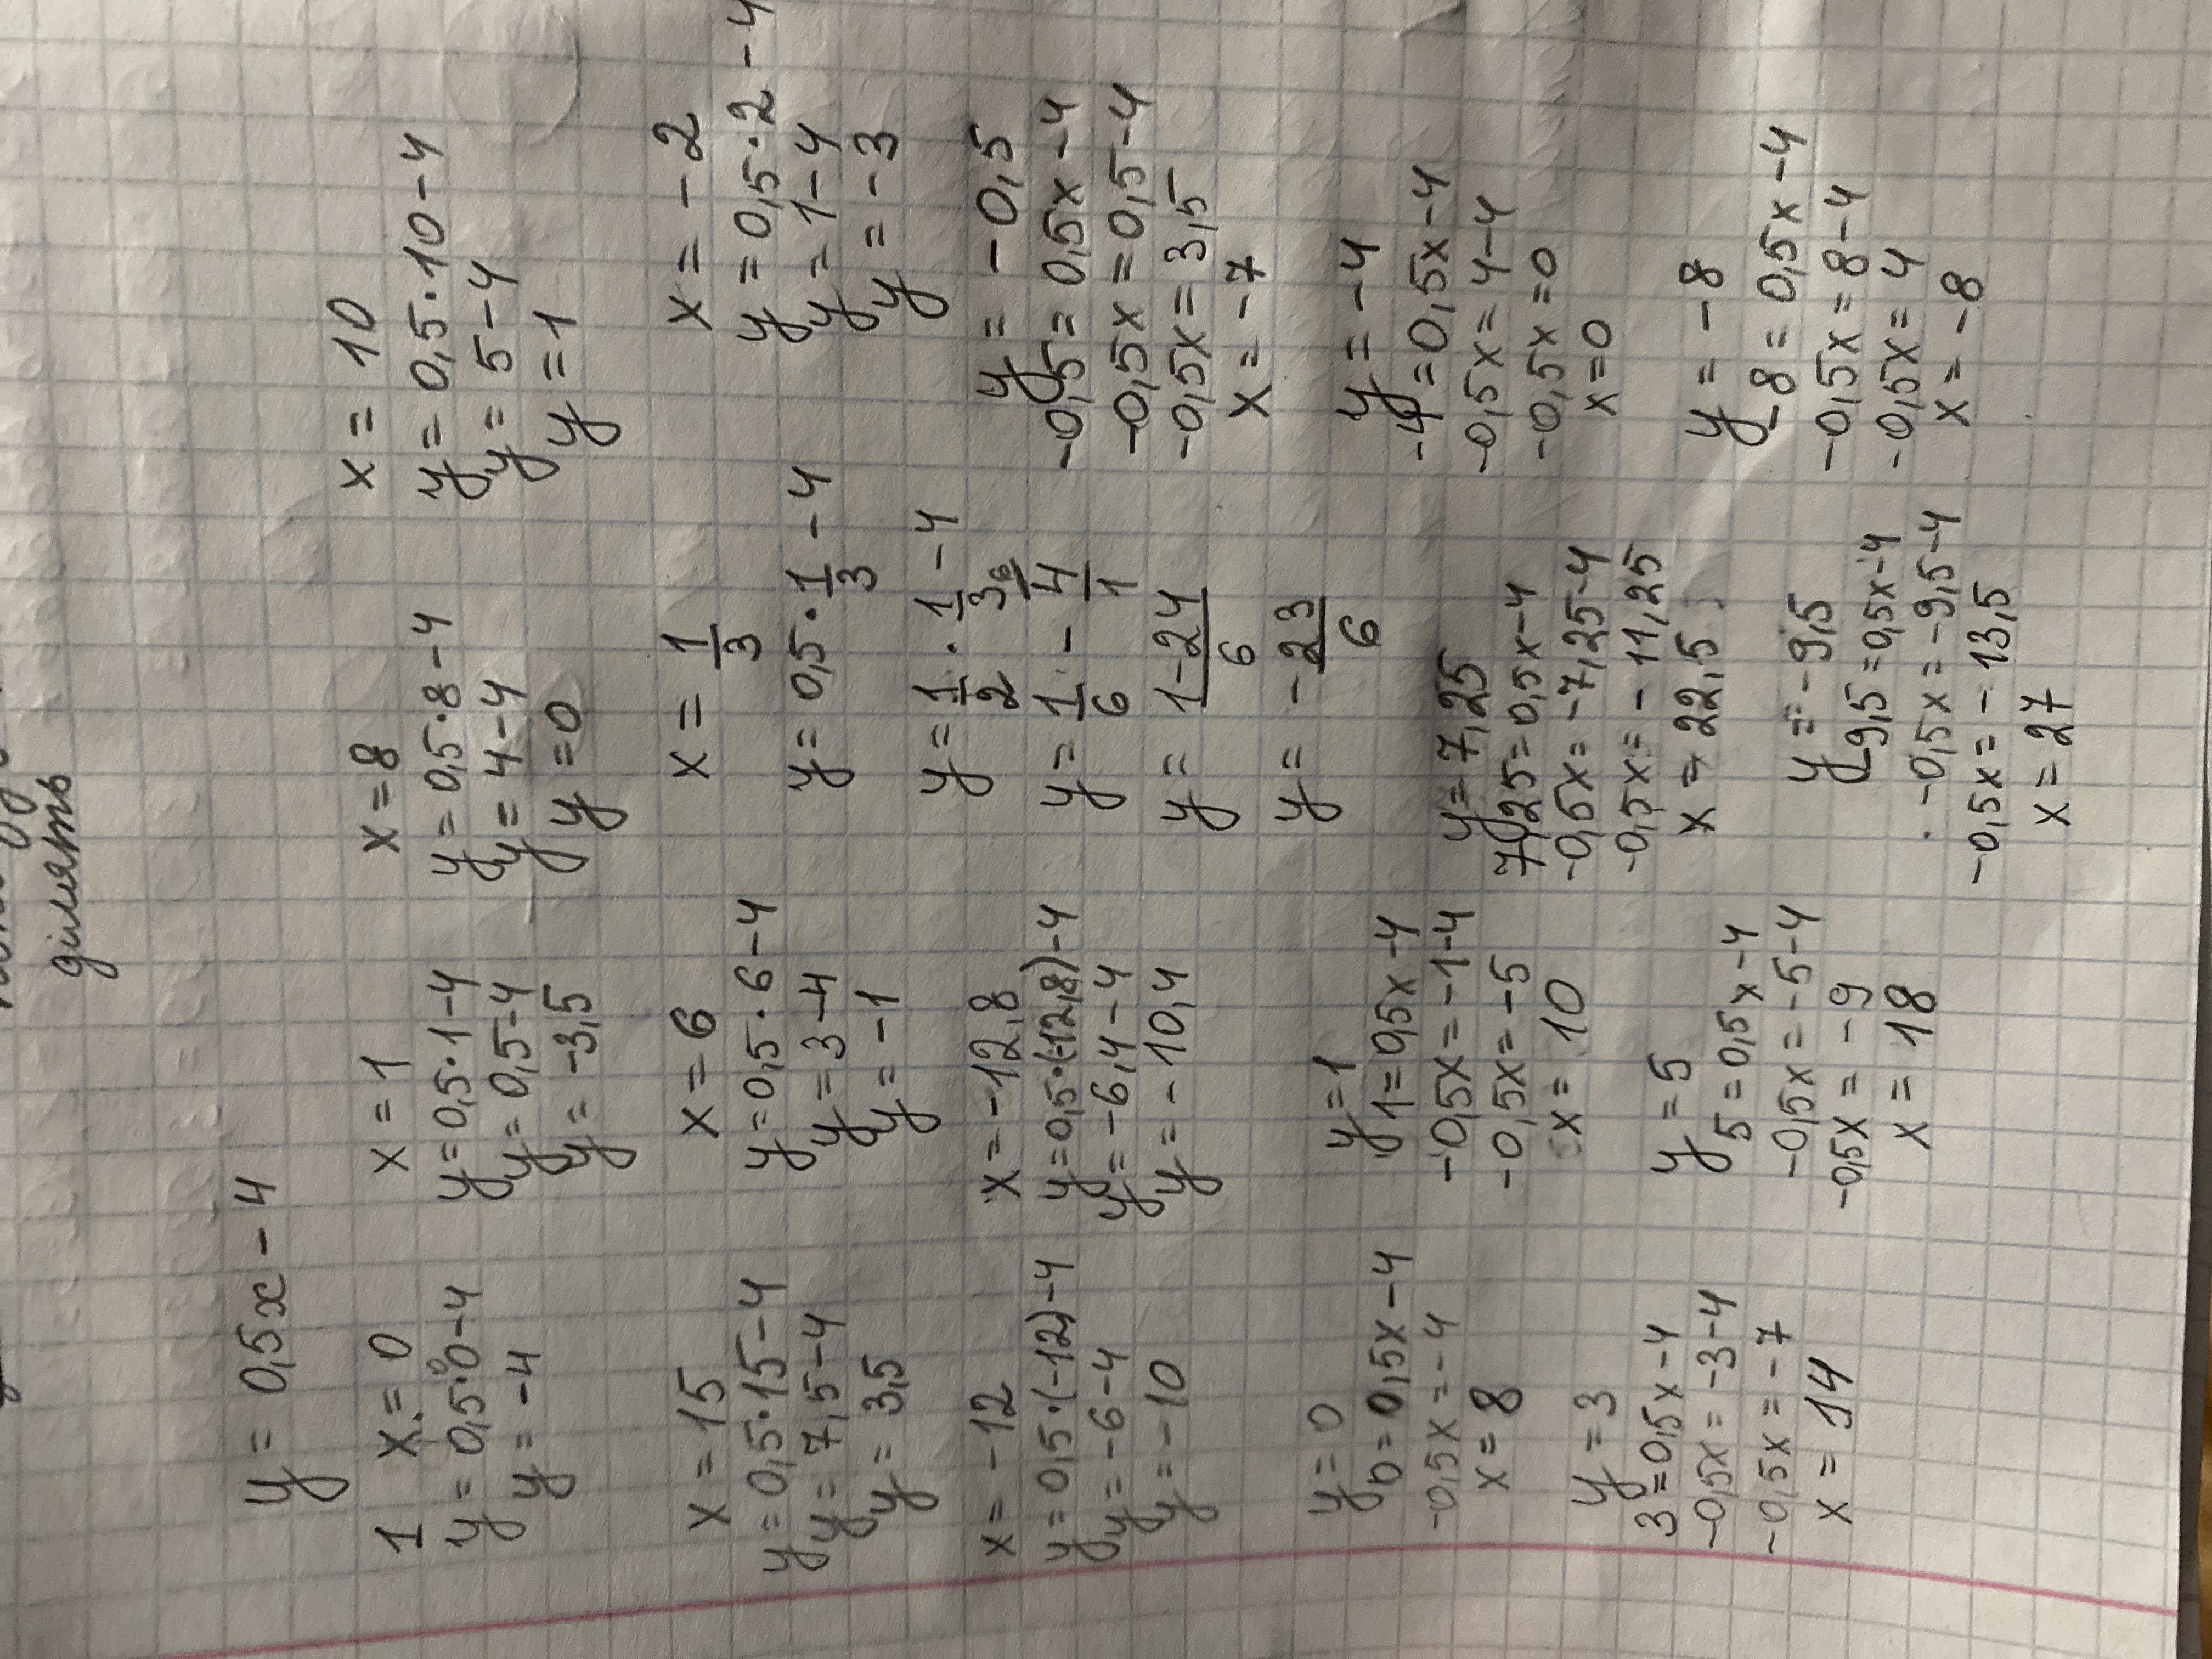 ділять
y = 0,5x - 4
1 x = 0
y = 0,5·0-4
y = -4
x = 1
y = 0,5·1-4
y = 0,5-4
y = -3,5
x = 8
y = 0,5·8-4
y = 4-4
y = 0
x = 10
y = 0,5·10-4
y = 5-4
y = 1
x = 15
y = 0,5·15-4
y = 7,5-4
y = 3,5
x = 6
y = 0,5·6-4
y = 3-4
y = -1
x = 1/3
y = 0,5·1/3 - 4
y = 1/2 · 1/3 - 4
y = 1/6 - 6 4/1
y = 1-24/6
y = -23/6
x = -2
y = 0,5·2 - 4
y = 1-4
y = -3
x = -12
y = 0,5·(-12)-4
y = -6-4
y = -10
x = -12,8
y = 0,5·(-12,8)-4
y = -6,4-4
y = -10,4
y = -0,5
-0,5 = 0,5x-4
-0,5x = 0,5-4
-0,5x = 3,5
x = -7
y = 0
0 = 0,5x-4
-0,5x = -4
x = 8
y = 1
1 = 0,5x-4
-0,5x = -1-4
-0,5x = -5
x = 10
y = 7,25
7,25 = 0,5x-4
-0,5x = -7,25-4
-0,5x = -11,25
x = 22,5
y = -4
-4 = 0,5x-4
-0,5x = 4-4
-0,5x = 0
x = 0
y = 3
3 = 0,5x-4
-0,5x = -3-4
-0,5x = -7
x = 14
y = 5
5 = 0,5x-4
-0,5x = -5-4
-0,5x = -9
x = 18
y = -9,5
-9,5 = 0,5x-4
-0,5x = -9,5-4
-0,5x = -13,5
x = 27
y = -8
-8 = 0,5x-4
-0,5x = 8-4
-0,5x = 4
x = -8